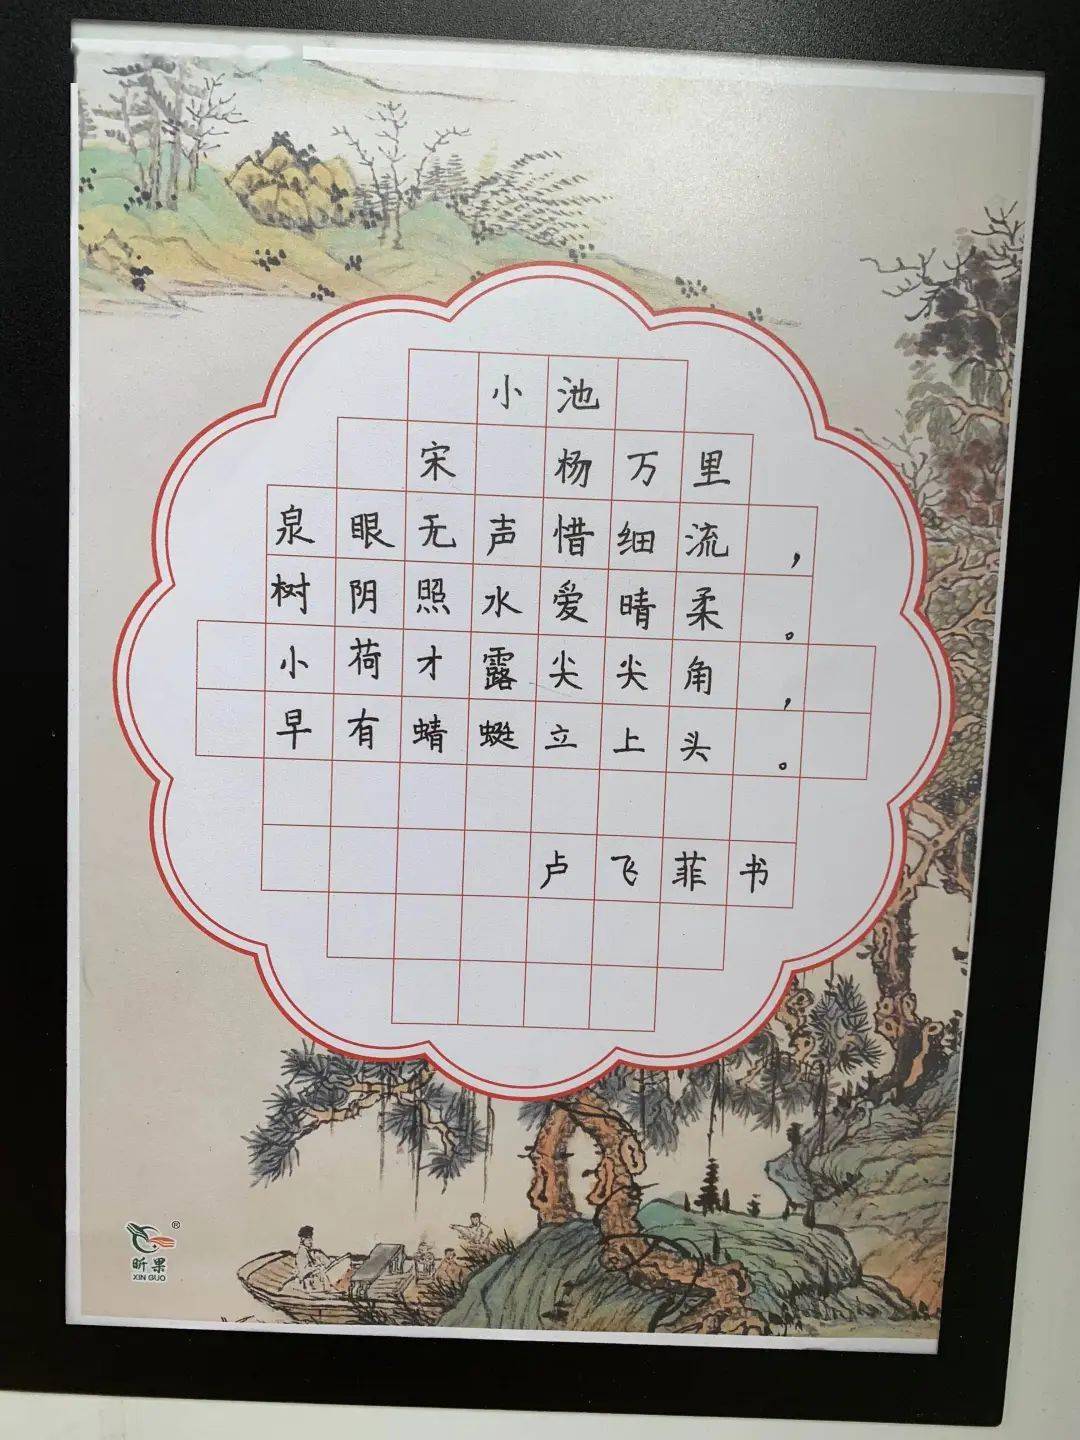 小池
宋 杨万里
泉眼无声惜细流，
树阴照水爱晴柔。
小荷才露尖尖角，
早有蜻蜓立上头。
卢飞菲书
®
昕果
XIN GUO